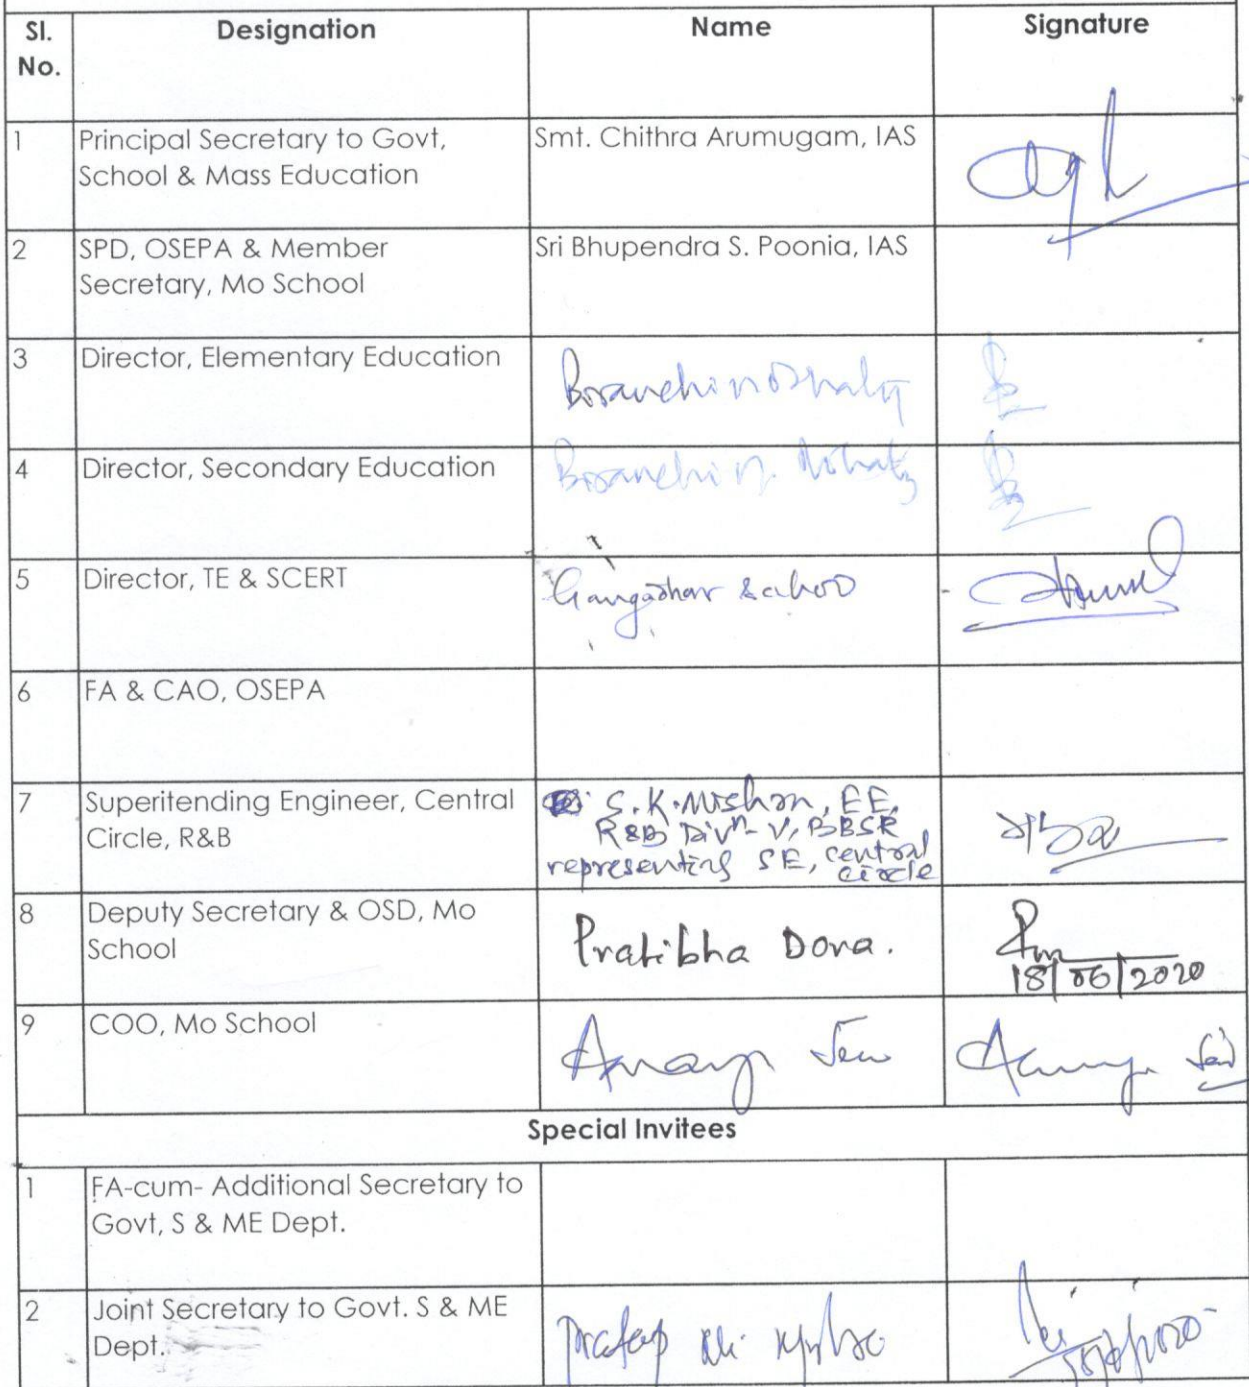 Sl. No.
Designation
Name
Signature
1
Principal Secretary to Govt,
School & Mass Education
Smt. Chithra Arumugam, IAS
2
SPD, OSEPA & Member
Secretary, Mo School
Sri Bhupendra S. Poonia, IAS
3
Director, Elementary Education
4
Director, Secondary Education
5
Director, TE & SCERT
Gangadhar Sahoo
6
FA & CAO, OSEPA
7
Superitending Engineer, Central
Circle, R&B
S.K. Mishra, EE,
R&B Divn- V, BBSR
representing SE, central
circle
8
Deputy Secretary & OSD, Mo
School
Pratibha Dora.
18/06/2020
9
COO, Mo School
Special Invitees
1
FA-cum- Additional Secretary to
Govt, S & ME Dept.
2
Joint Secretary to Govt. S & ME
Dept.
Pratap